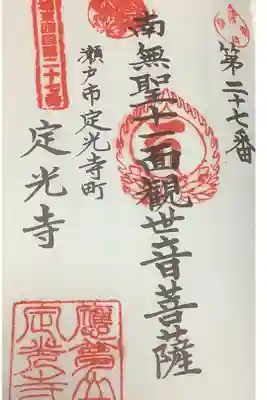 第二十七番
南無聖十一面觀世音菩薩
瀬戸市定光寺町
定光寺
第二十七番
應夢山
定光寺